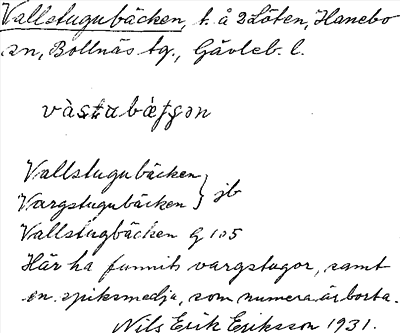 Vallstugubäcken, t. å 2 Löten, Hanebo
sn, Bollnäs tg., Gävleb. l.
Vallstugubäcken
Vargstugubäcken } jb
Vallstugbäcken G 105
Här ha funnits vargstugor, samt
en spiksmedja, som numera är borta.
Nils Erik Eriksson 1931.